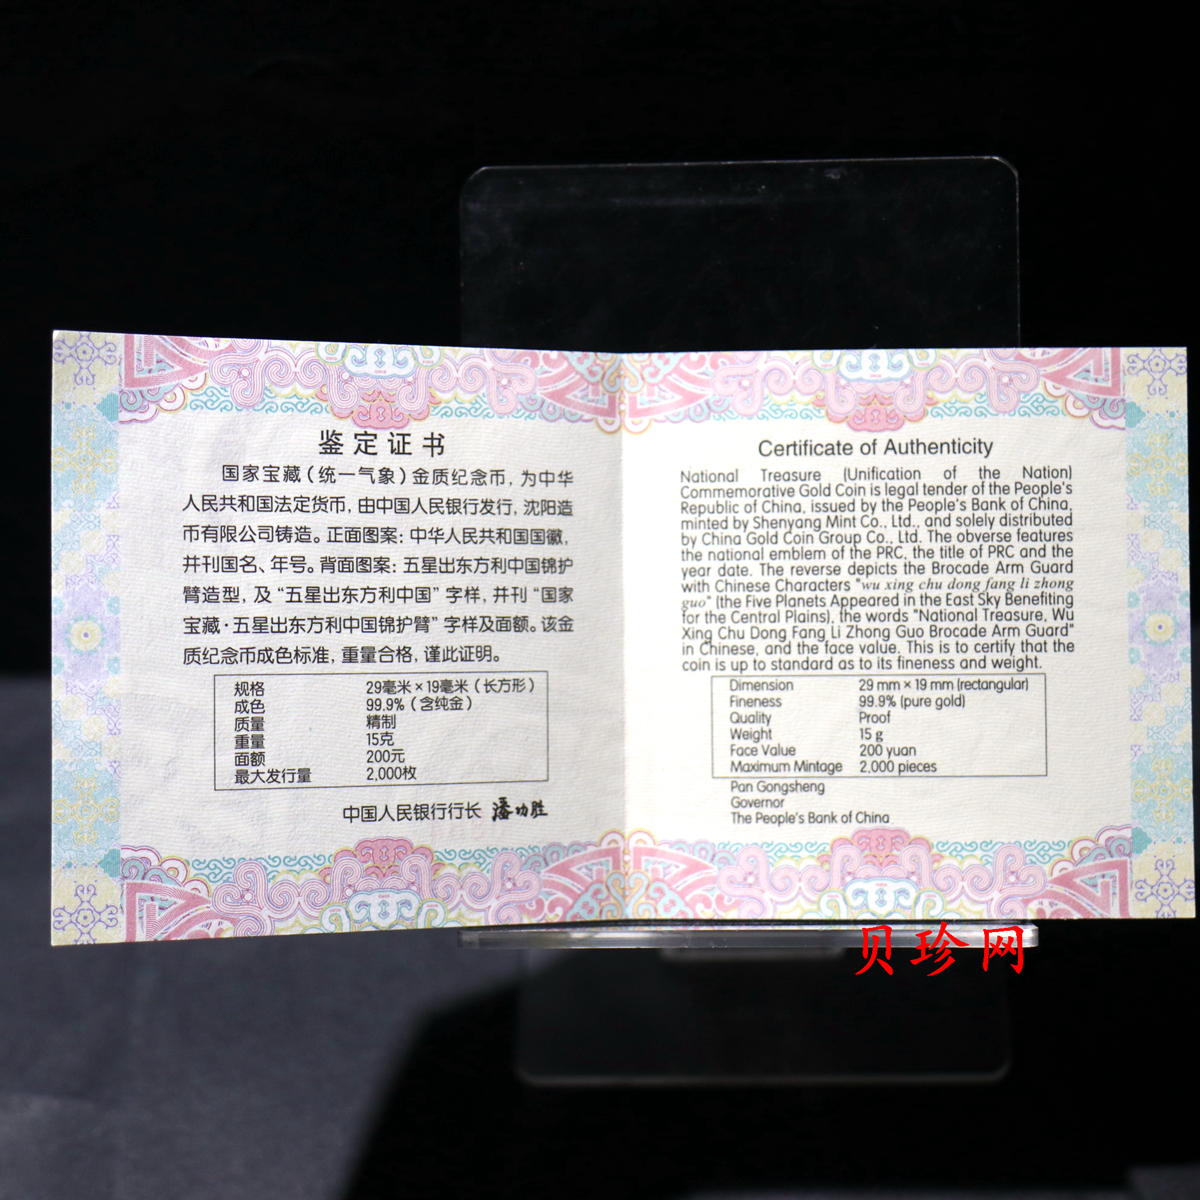 鉴定证书
国家宝藏（统一气象）金质纪念币，为中华
人民共和国法定货币，由中国人民银行发行，沈阳造
币有限公司铸造。正面图案：中华人民共和国国徽，
并刊国名、年号。背面图案：五星出东方利中国锦护
臂造型，及“五星出东方利中国”字样，并刊“国家
宝藏·五星出东方利中国锦护臂”字样及面额。该金
质纪念币成色标准，重量合格，谨此证明。
规格 29毫米×19毫米（长方形）
成色 99.9%（含纯金）
质量 精制
重量 15克
面额 200元
最大发行量 2,000枚
中国人民银行行长 潘功胜
Certificate of Authenticity
National Treasure (Unification of the Nation)
Commemorative Gold Coin is legal tender of the People's
Republic of China, issued by the People's Bank of China,
minted by Shenyang Mint Co., Ltd., and solely distributed
by China Gold Coin Group Co., Ltd. The obverse features
the national emblem of the PRC, the title of PRC and the
year date. The reverse depicts the Brocade Arm Guard
with Chinese Characters "wu xing chu dong fang li zhong
guo" (the Five Planets Appeared in the East Sky Benefiting
for the Central Plains), the words "National Treasure, Wu
Xing Chu Dong Fang Li Zhong Guo Brocade Arm Guard"
in Chinese, and the face value. This is to certify that the
coin is up to standard as to its fineness and weight.
Dimension 29 mm × 19 mm (rectangular)
Fineness 99.9% (pure gold)
Quality Proof
Weight 15 g
Face Value 200 yuan
Maximum Mintage 2,000 pieces
Pan Gongsheng
Governor
The People's Bank of China
贝珍网